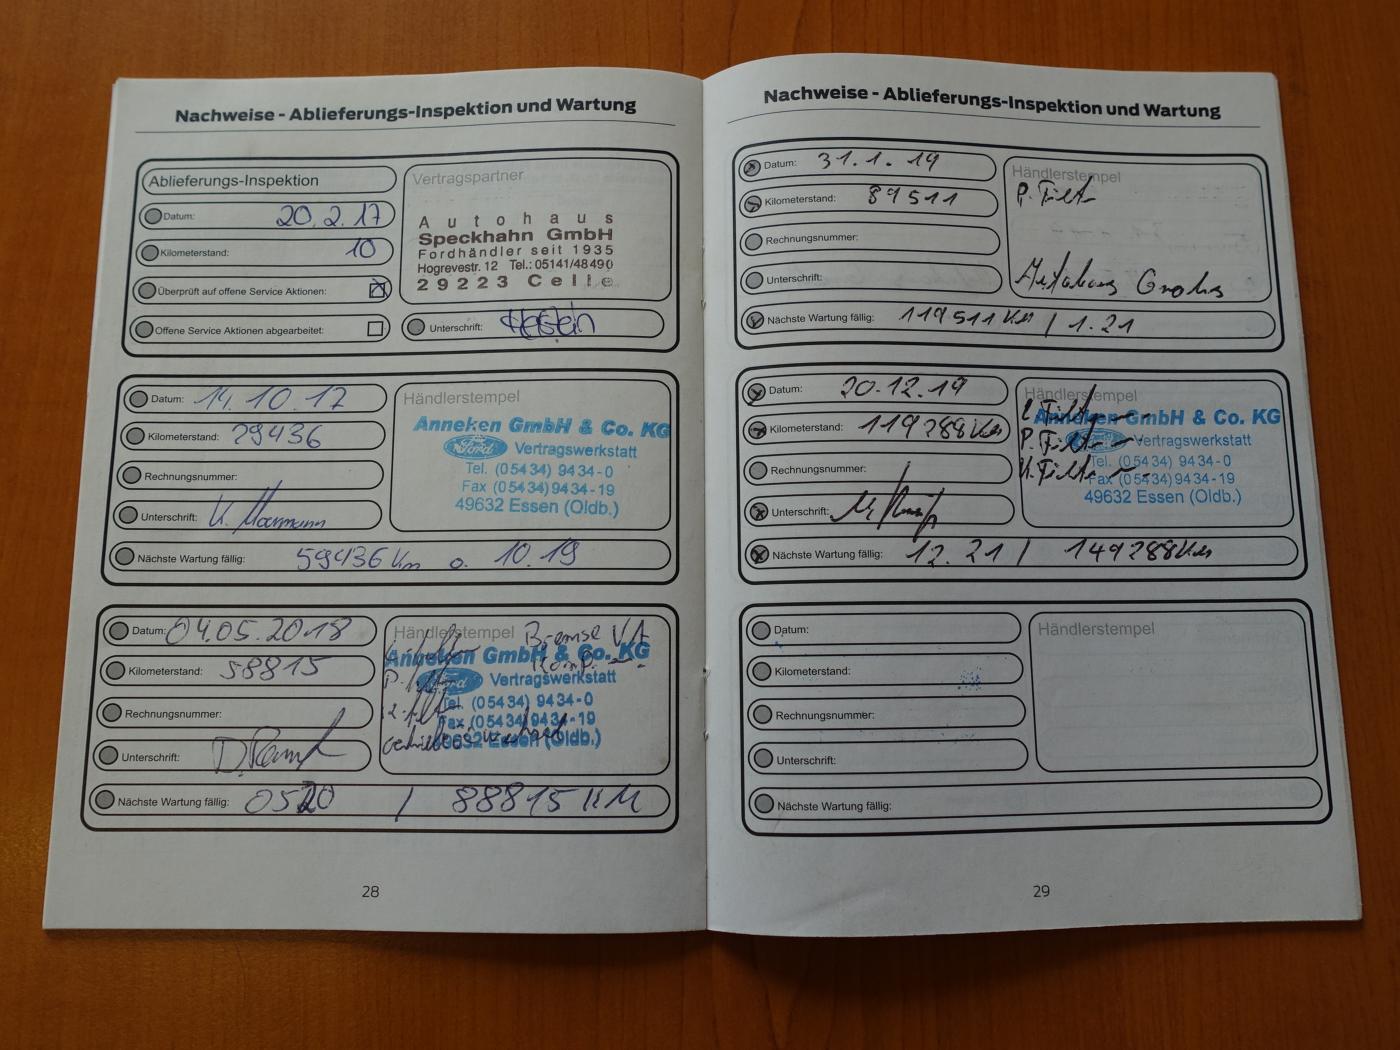 Nachweise - Ablieferungs-Inspektion und Wartung
Ablieferungs-Inspektion
Datum: 20.2.17
Kilometerstand: 10
Überprüft auf offene Service Aktionen:
Offene Service Aktionen abgearbeitet:
Vertragspartner
Autohaus
Speckhahn GmbH
Fordhändler seit 1935
Hogrevestr. 12 Tel.: 05141/48490
29223 Celle
Unterschrift:
Datum: 14.10.17
Kilometerstand: 29436
Rechnungsnummer:
Unterschrift:
Händlerstempel
Anneken GmbH & Co. KG
Ford Vertragswerkstatt
Tel. (05434) 9434-0
Fax (05434) 9434-19
49632 Essen (Oldb.)
Nächste Wartung fällig: 59436 Km o. 10.19
Datum: 04.05.2018
Kilometerstand: 58815
Rechnungsnummer:
Unterschrift:
Händlerstempel
Bremse VA
Anneken GmbH & Co. KG
Komp.
Ford Vertragswerkstatt
Tel. (05434) 9434-0
Fax (05434) 9434-19
49632 Essen (Oldb.)
Nächste Wartung fällig: 0520 / 88815 KM
28
Nachweise - Ablieferungs-Inspektion und Wartung
Datum: 31.1.19
Kilometerstand: 89511
Rechnungsnummer:
Unterschrift:
Händlerstempel
P. Filter
Nächste Wartung fällig: 119511 Km / 1.21
Datum: 20.12.19
Kilometerstand: 119288 Km
Rechnungsnummer:
Unterschrift:
Händlerstempel
Anneken GmbH & Co. KG
P. Filter
Ford Vertragswerkstatt
Tel. (05434) 9434-0
Fax (05434) 9434-19
49632 Essen (Oldb.)
Nächste Wartung fällig: 12.21 / 149288 Km
Datum:
Kilometerstand:
Rechnungsnummer:
Unterschrift:
Händlerstempel
Nächste Wartung fällig:
29